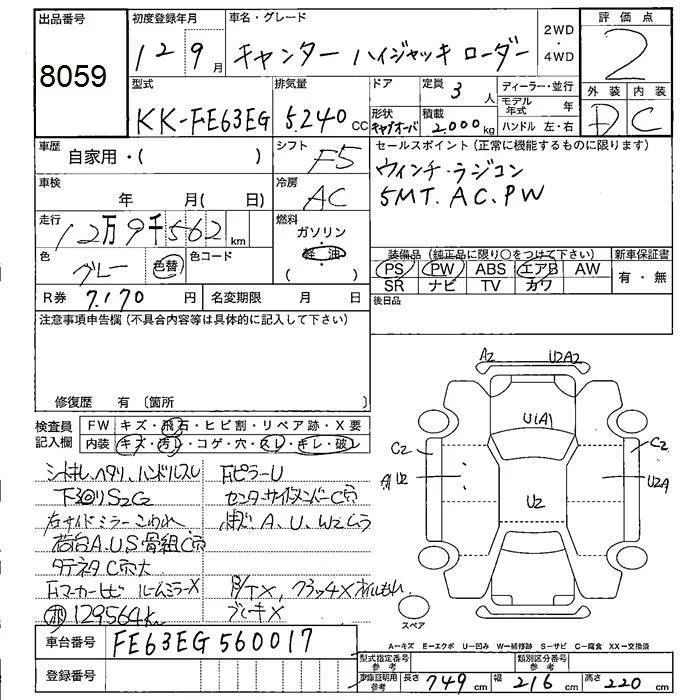 出品番号 初度登録年月 車名・グレード 2WD・4WD 評価点
8059 12 9月 キャンター ハイジャッキ ローダー 2
型式 排気量 ドア 定員 3人 ディーラー・並行 外装 内装
KK-FE63EG 5.240 CC 形状 キャブオーバ 積載 2000kg モデル年式 年 ハンドル 左・右 D C
車歴 自家用・( ) シフト F5 セールスポイント (正常に機能するものに限ります)
車検 年 月( 日) 冷房 AC ウィンチ・ラジコン
5MT. AC. PW
走行 12万9千562 km 燃料 ガソリン 軽油 ( )
色 グレー 色替 色コード
装備品 (純正品に限り○をつけて下さい) 新車保証書
PS PW ABS エアB AW 有・無
SR ナビ TV カワ
R券 7.170 円 名変期限 月 日 後日品
注意事項申告欄 (不具合内容等は具体的に記入して下さい)
修復歴 有 〔箇所 〕
検査員記入欄 FW キズ・飛石・ヒビ割・リペア跡・X要
内装 キズ・汚れ・コゲ・穴・スレ・キレ・破レ
ヘタリ、ハンドルスレ FピラーU
下回りS2C2 C穴
左サイドミラーこわれ A、U、W2
荷台A.U.S骨組C穴
C穴大
Fマーカーヒビ ルームミラーX クラッチX オイルもれ
129,564k ブレーキX
A2 U2A2
UiA1
C2 C2
A1 U2 U2 U2A
スペア
A-キズ E-エクボ U-凹み W-補修跡 S-サビ C-腐食 XX-交換済
車台番号 FE63EG560017
登録番号
型式指定番号 参考 類別区分番号 参考
車庫証明用 参考 長さ 749 cm 幅 216 cm 高さ 220 cm